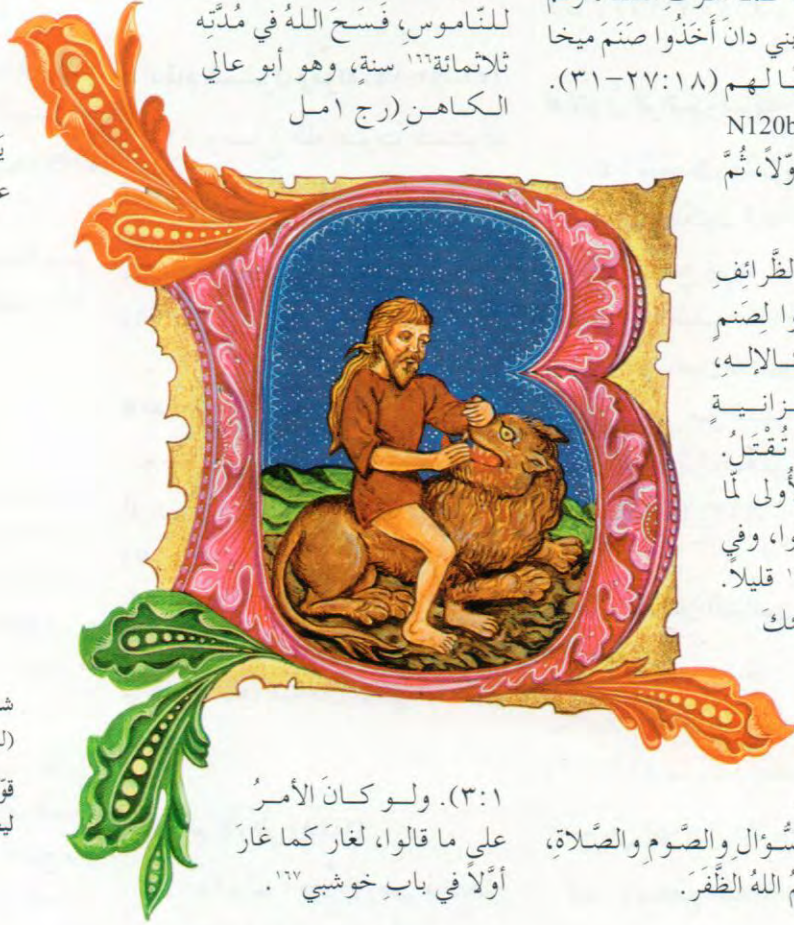 بني دانَ أَخَذُوا صَنَمَ ميخا
ـالهم (١٨:٢٧–٣١).
N120b
وّلاً، ثُمَّ
الظَّرائِفِ
وا لِصَنمٍ
كـالإلـهِ،
ـزانـيـةٍ
تُقْتَلُ.
الأُولى لّما
وا، وفي
قليلاً.
السُّؤالِ والصَّومِ والصَّلاةِ،
اللهُ الظَّفَرَ.
للنّاموسِ، فَسَحَ اللهُ في مُدَّتِه
ثلاثمائة١٦٦ سنةٍ، وهو أبو عالي
الـكـاهـنِ (رج ١مـل
١:٣). ولـو كـانَ الأمـرُ
على ما قالوا، لغارَ كما غارَ
أوَّلاً في بابِ خوشبي١٦٧.